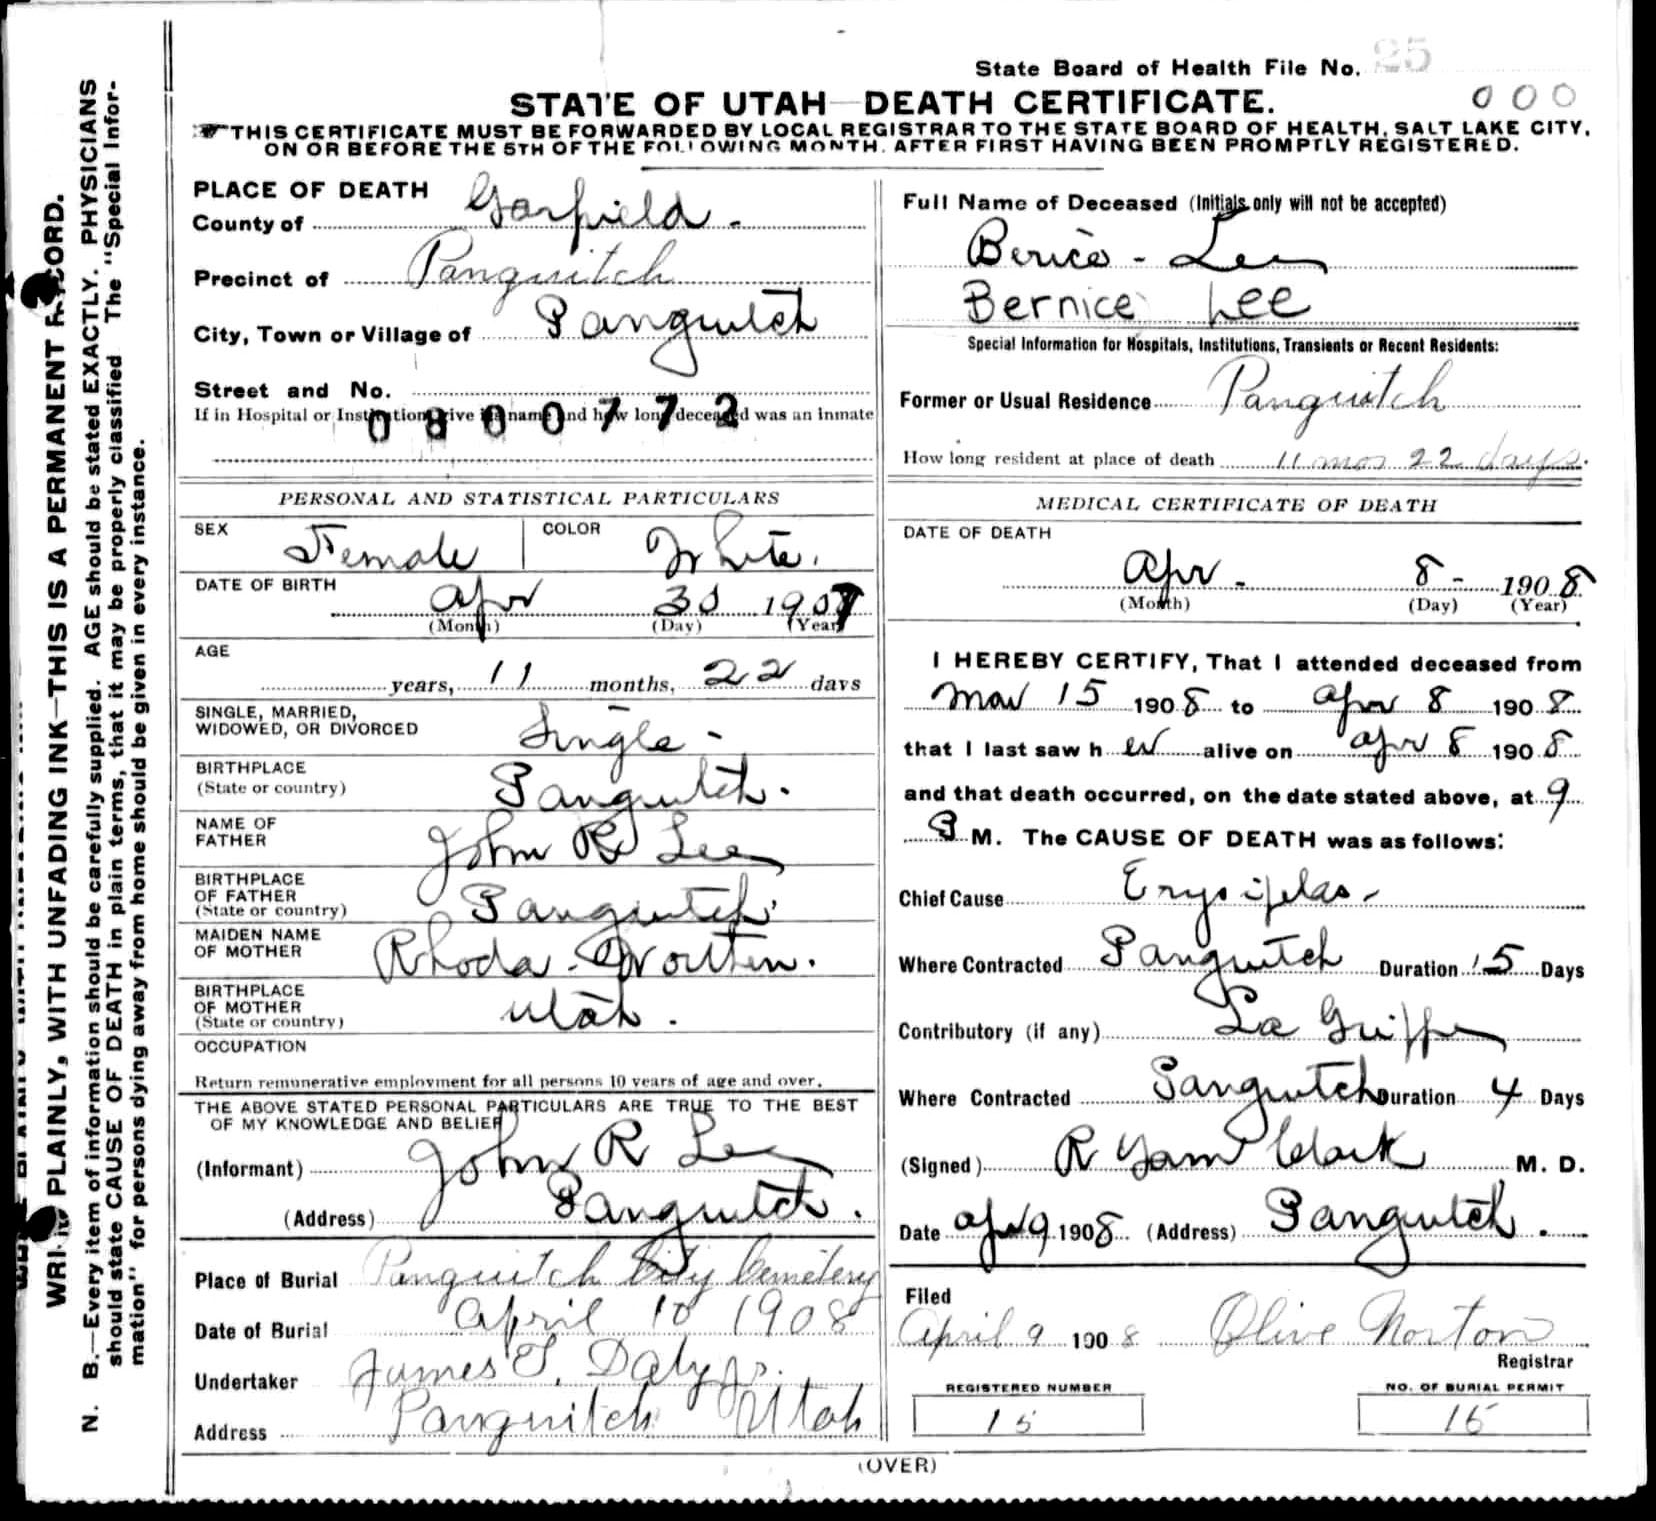 State Board of Health File No. 25
000
STATE OF UTAH—DEATH CERTIFICATE.
THIS CERTIFICATE MUST BE FORWARDED BY LOCAL REGISTRAR TO THE STATE BOARD OF HEALTH, SALT LAKE CITY,
ON OR BEFORE THE 5TH OF THE FOLLOWING MONTH. AFTER FIRST HAVING BEEN PROMPTLY REGISTERED.
WRITE PLAINLY, WITH UNFADING INK—THIS IS A PERMANENT RECORD.
N. B.—Every item of information should be carefully supplied. AGE should be stated EXACTLY. PHYSICIANS
should state CAUSE OF DEATH in plain terms, that it may be properly classified The "Special Infor-
mation" for persons dying away from home should be given in every instance.
PLACE OF DEATH
County of Garfield -
Precinct of Panguitch
City, Town or Village of Panguitch
Street and No.
If in Hospital or Institution give its name and how long deceased was an inmate
0800772
PERSONAL AND STATISTICAL PARTICULARS
SEX Female COLOR White.
DATE OF BIRTH
Apr 30 1907
(Month) (Day) (Year)
AGE
years, 11 months, 22 days
SINGLE, MARRIED,
WIDOWED, OR DIVORCED Single -
BIRTHPLACE
(State or country) Panguitch.
NAME OF
FATHER John R Lee
BIRTHPLACE
OF FATHER
(State or country) Panguitch
MAIDEN NAME
OF MOTHER Rhoda
BIRTHPLACE
OF MOTHER
(State or country) Utah.
OCCUPATION
Return remunerative employment for all persons 10 years of age and over.
THE ABOVE STATED PERSONAL PARTICULARS ARE TRUE TO THE BEST
OF MY KNOWLEDGE AND BELIEF
(Informant) John R Lee
(Address) Panguitch.
Place of Burial Panguitch City Cemetery
Date of Burial April 10 1908
Undertaker James T. Daly Jr.
Address Panguitch Utah
Full Name of Deceased (Initials only will not be accepted)
Berice - Lee
Bernice Lee
Special Information for Hospitals, Institutions, Transients or Recent Residents:
Former or Usual Residence Panguitch
How long resident at place of death 11 mos 22 days.
MEDICAL CERTIFICATE OF DEATH
DATE OF DEATH
Apr - 8 - 1908
(Month) (Day) (Year)
I HEREBY CERTIFY, That I attended deceased from
Mar 15 1908 to Apr 8 1908
that I last saw her alive on Apr 8 1908
and that death occurred, on the date stated above, at 9
P M. The CAUSE OF DEATH was as follows:
Chief Cause Erysipelas -
Where Contracted Panguitch Duration 15 Days
Contributory (if any) La Grippe
Where Contracted Panguitch Duration 4 Days
(Signed) R Clark M. D.
Date Apr 9 1908 (Address) Panguitch.
Filed
April 9 1908 Olive Norton
Registrar
REGISTERED NUMBER
15
NO. OF BURIAL PERMIT
15
(OVER)